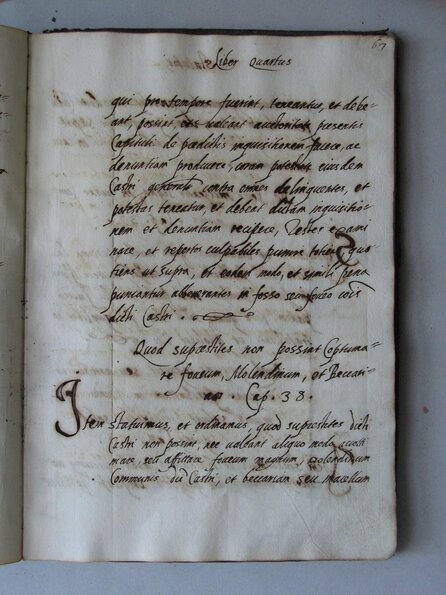 67
Liber Quartus
qui pro tempore fuerint, teneantur, et debe-
ant, possint, et valeant auctoritate presentis
Capituli de prædictis inquisitionem facere, ac
denuntiam producere, coram potestate eiusdem
Castri generale contra omnes delinquentes, et
potestas teneatur, et debeat dictam inquisitio-
nem et denuntiam recipere, Testes exami
nare, et repertos culpabiles punire toties quo-
tiens ut supra, et eodem modo, et simili pena
puniantur abbeverantes in fosso seu
dicti Castri.
Quod supræstites non possint
re foveum, Molendinum, et Beccari-
am. Cap. 38.
Item statuimus, et ordinamus, quod supræstites dicti
Castri non possint, nec valeant aliquo modo
mare, seu affictare foveum magnum, molendinum
Communis dicti Castri, et beccariam seu macellum